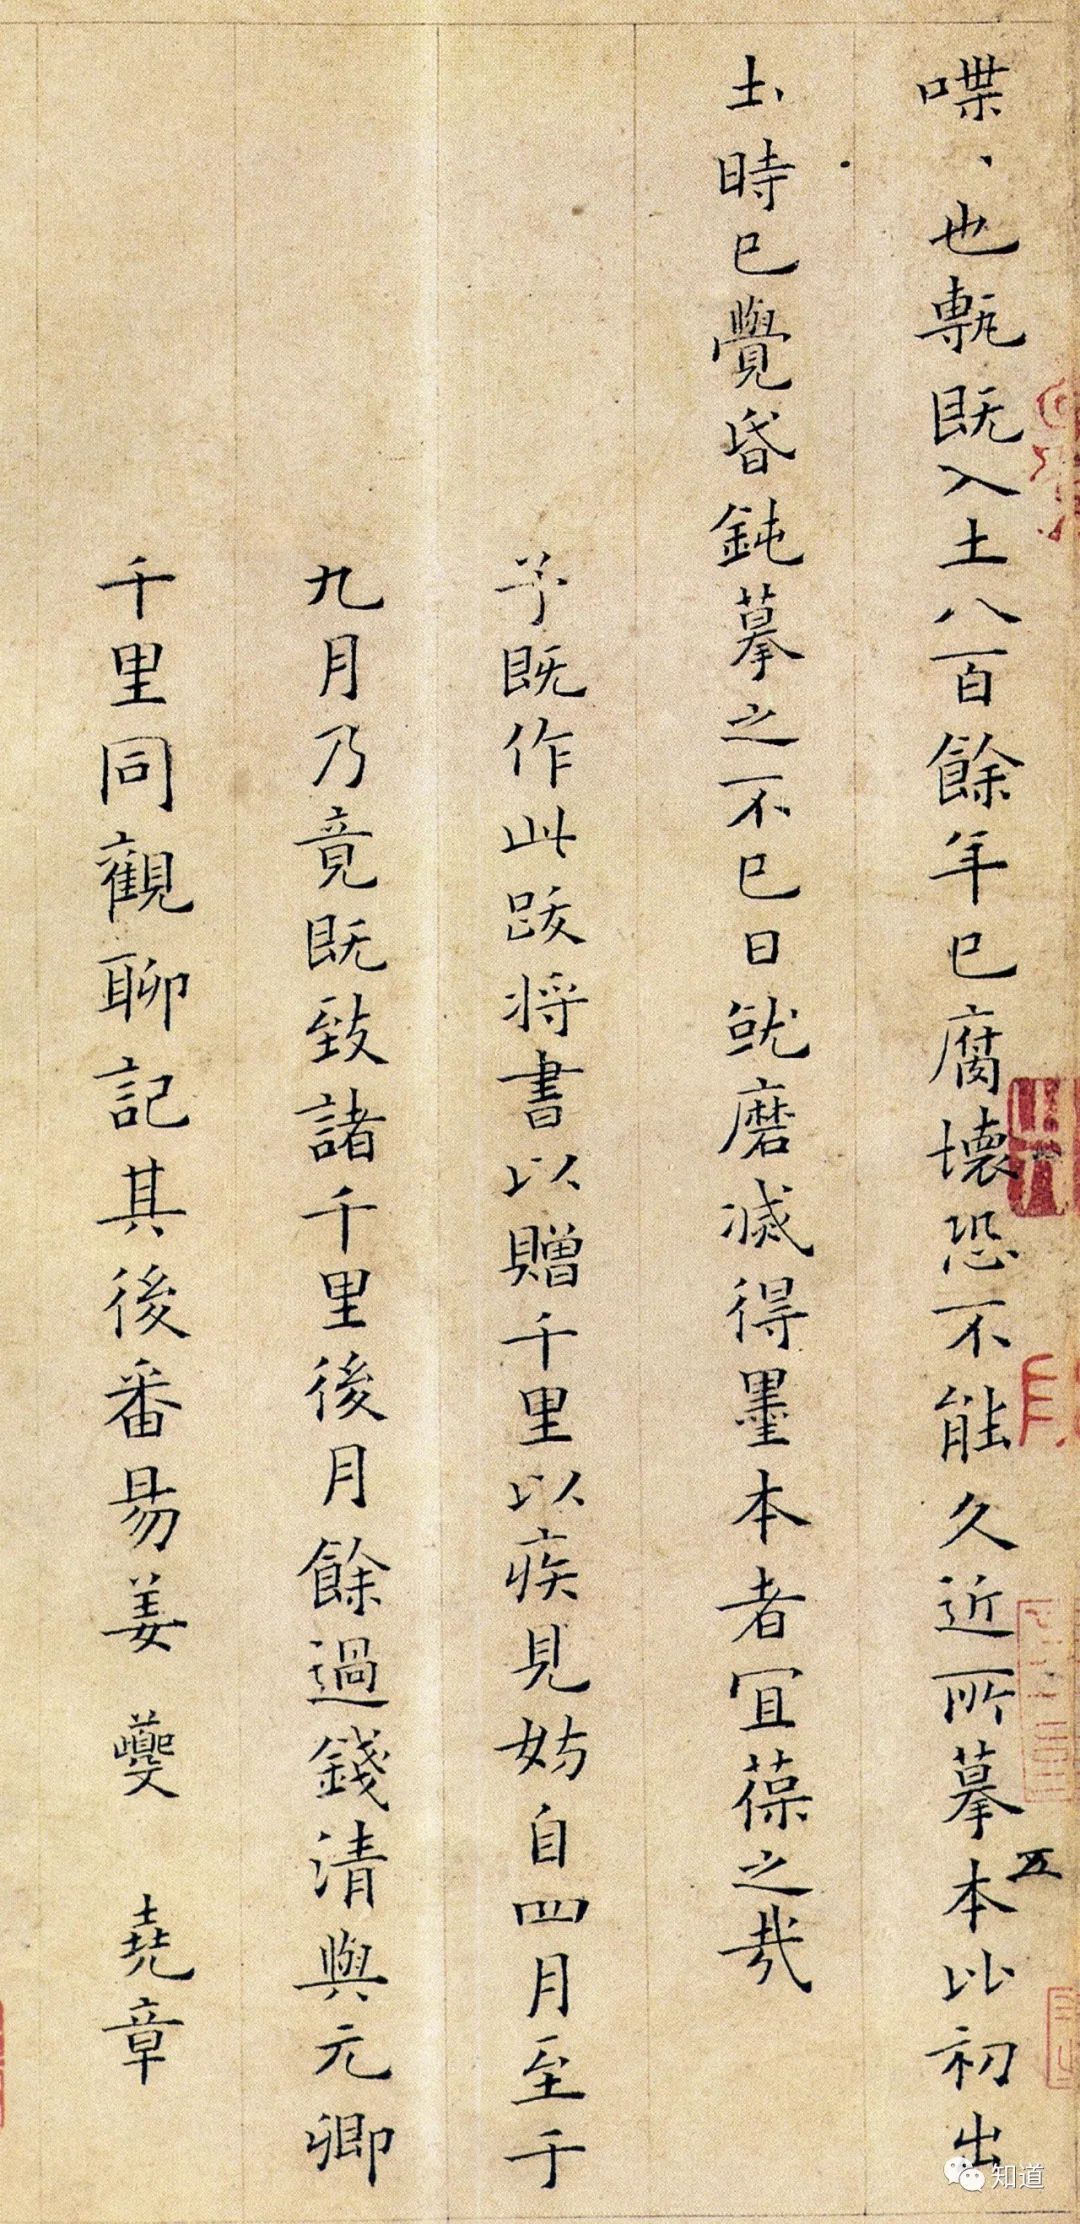 喋、也甎既入土八百餘年已腐壞恐不能久近所摹本比初出
土時已覺昏鈍摹之不已日就磨滅得墨本者宜葆之哉
予既作此跋將書以贈千里以疾見妨自四月至于
九月乃竟既致諸千里後月餘過錢清與元卿
千里同觀聊記其後番昜姜夔堯章
五
知道